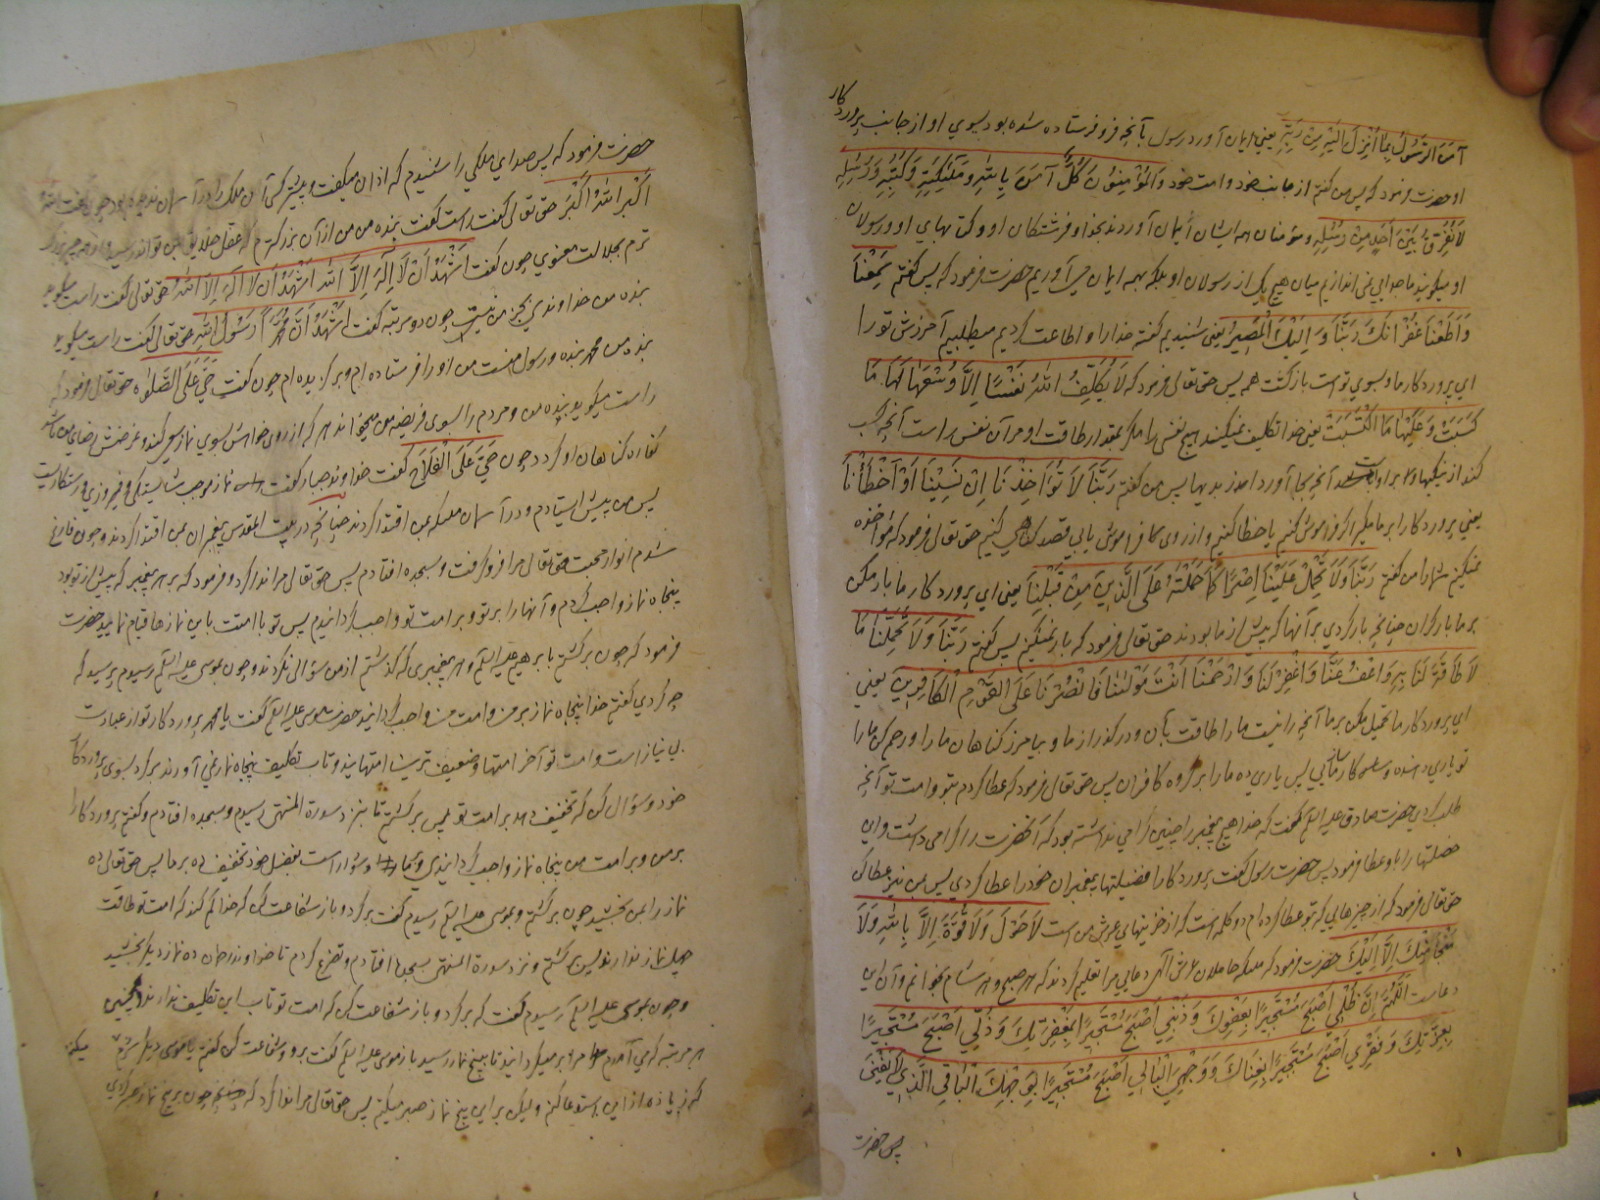 آمن الرسول بما انزل الیه من ربه یعنی ایمان آورد رسول بآنچه فرو فرستاده شده بود بسوی او از جانب پروردکار
او حضرت فرمود که پس من کفتم از جانب خود و امت خود وَالمُؤمِنُونَ کُلٌّ آمَنَ بِاللهِ وَمَلٰئِکَتِهِ وَکُتُبِهِ وَرُسُلِهِ
لَا نُفَرِّقُ بَیْنَ اَحَدٍ مِنْ رُسُلِهِ و مؤمنان همه ایشان ایمان آوردند بخدا و فرشتکان او و کتابهای او و رسولان
او میکویند ما جدایی نمی اندازیم میان هیچ یک از رسولان او بلکه بهمه ایمان می آوریم حضرت فرمود که پس کفتم سَمِعْنَا
وَاَطَعْنَا غُفْرَانَکَ رَبَّنَا وَاِلَیْکَ الْمَصِیرُ یعنی شنیدیم کفته خدا را و اطاعت کردیم میطلبیم آمرزش تو را
ای پروردکار ما و بسوی تو است بازکشت همه پس حق تعالی فرمود که لَا یُکَلِّفُ اللهُ نَفْسًا اِلَّا وُسْعَهَا لَهَا مَا
کَسَبَتْ وَعَلَیْهَا مَا اکْتَسَبَتْ یعنی خدا تکلیف نمیکند هیچ نفسی را مکر بمقدار طاقت او مر آن نفس راست آنچه کسب
کند از نیکیها و بر اوست آنچه بجا آورد از بدیها پس من کفتم رَبَّنَا لَا تُؤَاخِذْنَا اِنْ نَسِینَا اَوْ اَخْطَأْنَا
یعنی پروردکارا بر ما مکیر اکر فراموش کنیم یا خطا کنیم و از روی فراموشی یا بی قصد کناهی کنیم حق تعالی فرمود که مؤاخذه
نمیکنم شما را من کفتم رَبَّنَا وَلَا تَحْمِلْ عَلَیْنَا اِصْرًا کَمَا حَمَلْتَهُ عَلَی الَّذِینَ مِنْ قَبْلِنَا یعنی ای پروردکار ما بار مکن
بر ما بار کران چنانچه بار کردی بر آنها که پیش از ما بودند حق تعالی فرمود که بار نمیکنم پس کفتم رَبَّنَا وَلَا تُحَمِّلْنَا مَا
لَا طَاقَةَ لَنَا بِهِ وَاعْفُ عَنَّا وَاغْفِرْ لَنَا وَارْحَمْنَا اَنْتَ مَوْلٰنَا فَانْصُرْنَا عَلَی الْقَوْمِ الْکَافِرِینَ یعنی
ای پروردکار ما تحمیل مکن بر ما آنچه را نیست ما را طاقت بآن و درکذر از ما و بیامرز کناهان ما را و رحم کن ما را
تو یاری دهنده و کارساز مایی پس یاری ده ما را بر کروه کافران پس حق تعالی فرمود که عطا کردم بتو و امت تو آنچه
طلب کردی حضرت صادق علیه السلام کفت که خدا هیچ پیغمبر را چنین کرامی نداشته بود که آنحضرت را کرامی داشت و این
خصلتها را باو عطا فرمود پس حضرت رسول کفت پروردکارا فضیلتها بپیغمبران خود عطا کردی پس بمن نیز عطا کن
حق تعالی فرمود که از چیزهایی که بتو عطا کرده ام دو کلمه است که از خزینهای عرش من است لَا حَوْلَ وَلَا قُوَّةَ اِلَّا بِاللهِ وَلَا
مَنْجَا مِنْکَ اِلَّا اِلَیْکَ حضرت فرمود که ملٰئکه حاملان عرش الهی دعایی مرا تعلیم کردند که هر صبح و هر شام بخوانم و آن این
دعاست اَللّٰهُمَّ اِنَّ ظُلْمِی اَصْبَحَ مُسْتَجِیرًا بِعَفْوِکَ وَذَنْبِی اَصْبَحَ مُسْتَجِیرًا بِمَغْفِرَتِکَ وَذُلِّی اَصْبَحَ مُسْتَجِیرًا
بِعِزَّتِکَ وَفَقْرِی اَصْبَحَ مُسْتَجِیرًا بِغِنَاکَ وَوَجْهِیَ الْبَالِی اَصْبَحَ مُسْتَجِیرًا بِوَجْهِکَ الْبَاقِی الَّذِی لَا یَفْنَی
پس حضرت
حضرت فرمود که پس صدای ملکی را شنیدم که اذان میکفت و پیشتر کسی آن ملک را در آسمان ندیده بود چون کفت اللهُ
اَکْبَرُ اللهُ اَکْبَرُ حق تعالی کفت راست کفت بنده من من از آن بزرکترم که عقل خلایق بمن تواند رسید
ترم بجلالت معنوی چون کفت اَشْهَدُ اَنْ لَا اِلٰهَ اِلَّا اللهُ اَشْهَدُ اَنْ لَا اِلٰهَ اِلَّا اللهُ حق تعالی کفت راست میکوید
بنده من خداوندی بجز من نیست چون دو مرتبه کفت اَشْهَدُ اَنَّ مُحَمَّدًا رَسُولُ اللهِ حق تعالی کفت راست میکوید
بنده من محمد بنده و رسول منست من او را فرستاده ام و برکزیده ام چون کفت حَیَّ عَلَی الصَّلٰوة حق تعالی فرمود که
راست میکوید بنده من و مردم را بسوی فریضه من میخواند هر که از روی خواهش بسوی نماز سعی کند و غرضش رضای من باشد
کفاره کناهان او کردد چون حَیَّ عَلَی الْفَلَاحِ کفت خداوند جبار کفت نماز موجب شایستکی و فیروزی و رستکاریست
پس من پیش ایستادم و در آسمان ملٰئکه بمن اقتدا کردند چنانچه در بیت المقدس پیغمبران بمن اقتدا کردند و چون فارغ
شدم انوار محبت حق تعالی مرا فرو کرفت و بسجده افتادم پس حق تعالی مرا ندا کرد و فرمود که بر هر پیغمبر که پیش از تو بود
پنجاه نماز واجب کردم و آنها را بر تو و بر امت تو واجب کردانیدم پس تو با امت باین نمازها قیام نمایید حضرت
فرمود که چون برکشتم بابرهیم علیه السلام و هر پیغمبری که کذشتم از من سؤالی نکردند و چون بموسی علیه السلام رسیدم پرسید که
چه کردی کفتم خدا پنجاه نماز بر من و امت من واجب کردانید حضرت موسی علیه السلام کفت یا محمد پروردکار تو از عبادت
بی نیاز است و امت تو آخر امتها و ضعیف ترین امتهایند و تاب تکلیف پنجاه نماز نمی آورند برکرد بسوی پروردکار
خود و سؤال کن که تخفیف دهد بر امت تو پس برکشتم تا بنزد سدرة المنتهی رسیدم و بسجده افتادم و کفتم پروردکارا
بر من و بر امت من پنجاه نماز واجب کردانیدی و دشوار است بفضل خود تخفیف ده بر ما پس حق تعالی ده
نماز را بمن بخشید چون برکشتم و بموسی علیه السلام رسیدم کفت برکرد و باز شفاعت کن که خدا کم کند که امت تو طاقت
چهل نماز ندارند پس برکشتم و نزد سدرة المنتهی بسجده افتادم و تضرع کردم تا خداوند رحمان ده نماز دیکر بخشید
و چون بموسی علیه السلام رسیدم کفت که برکرد و باز شفاعت کن که امت تو تاب این تکلیف ندارند
هر مرتبه که می آمدم مرا برمیکردانید تا به پنج نماز رسید باز موسی علیه السلام کفت برو و شفاعت کن کفتم یا موسی دیکر شرم میکنم
که زیاده از این استدعا کنم ولیکن بر این پنج نماز صبر میکنم پس حق تعالی مرا ندا کرد که چون بر پنج نماز صبر کردی